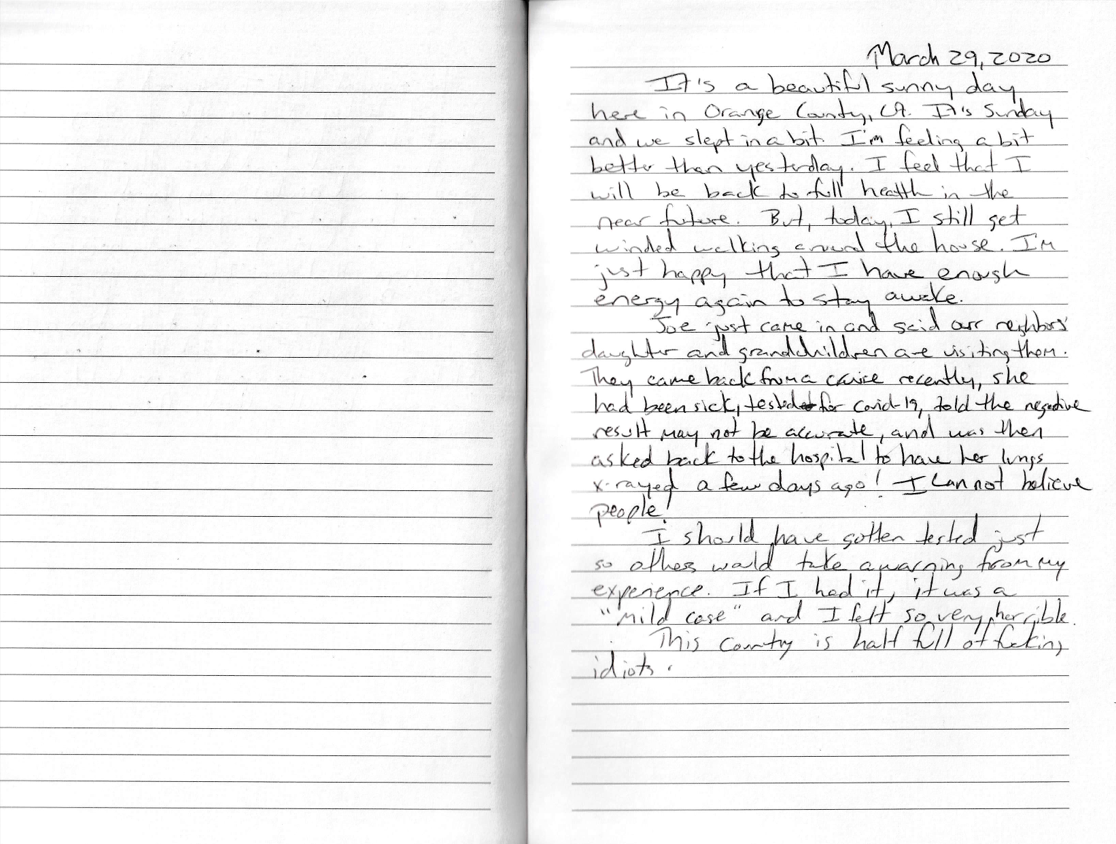 March 29, 2020
It's a beautiful sunny day
here in Orange County, CA. It's Sunday
and we slept in a bit. I'm feeling a bit
better than yesterday. I feel that I
will be back to full health in the
near future. But, today, I still get
winded walking around the house. I'm
just happy that I have enough
energy again to stay awake.
Joe just came in and said our neighbors'
daughter and grandchildren are visiting them.
They came back from a cruise recently, she
had been sick, tested for covid-19, told the negative
result may not be accurate, and was then
asked back to the hospital to have her lungs
x-rayed a few days ago! I can not believe
people!
I should have gotten tested just
so others would take a warning from my
experience. If I had it, it was a
"mild case" and I felt so very horrible.
This country is half full of fucking
idiots.